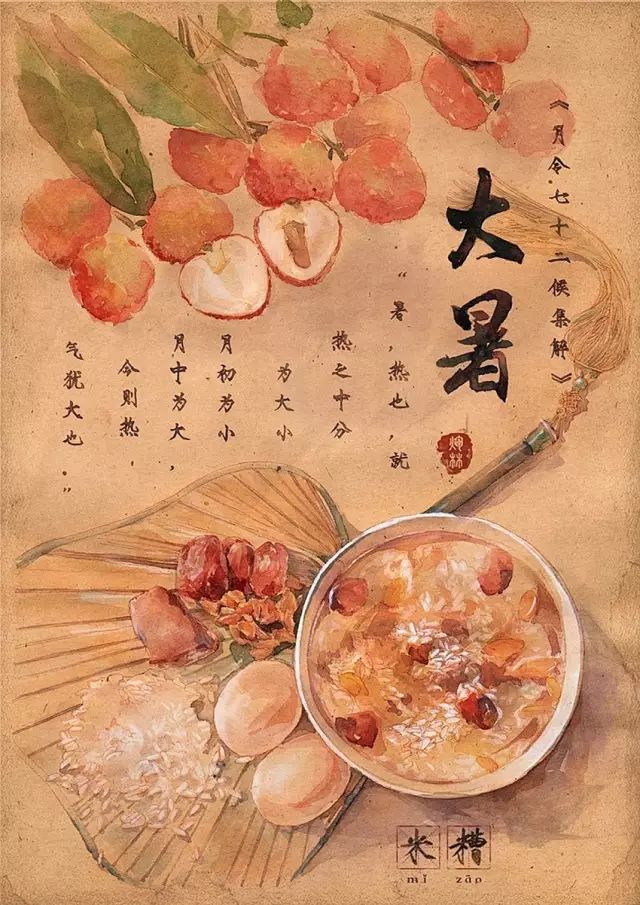 《月令七十二候集解》
大暑
“暑,热也,就
热之中分
为大小
月初为小
月中为大,
今则热
气犹大也。”
米糟
mǐ zāo